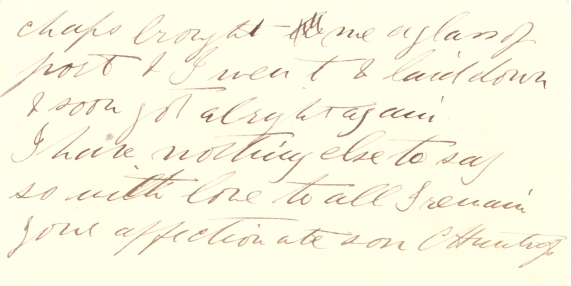 chaps brought me a glass of
port & I went & laid down
& soon got alright again
I have nothing else to say
so with love to all I remain
your affectionate son C